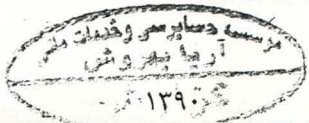 موسسه حسابرسی و خدمات مالی
آریا بهروش
۱۳۹۰